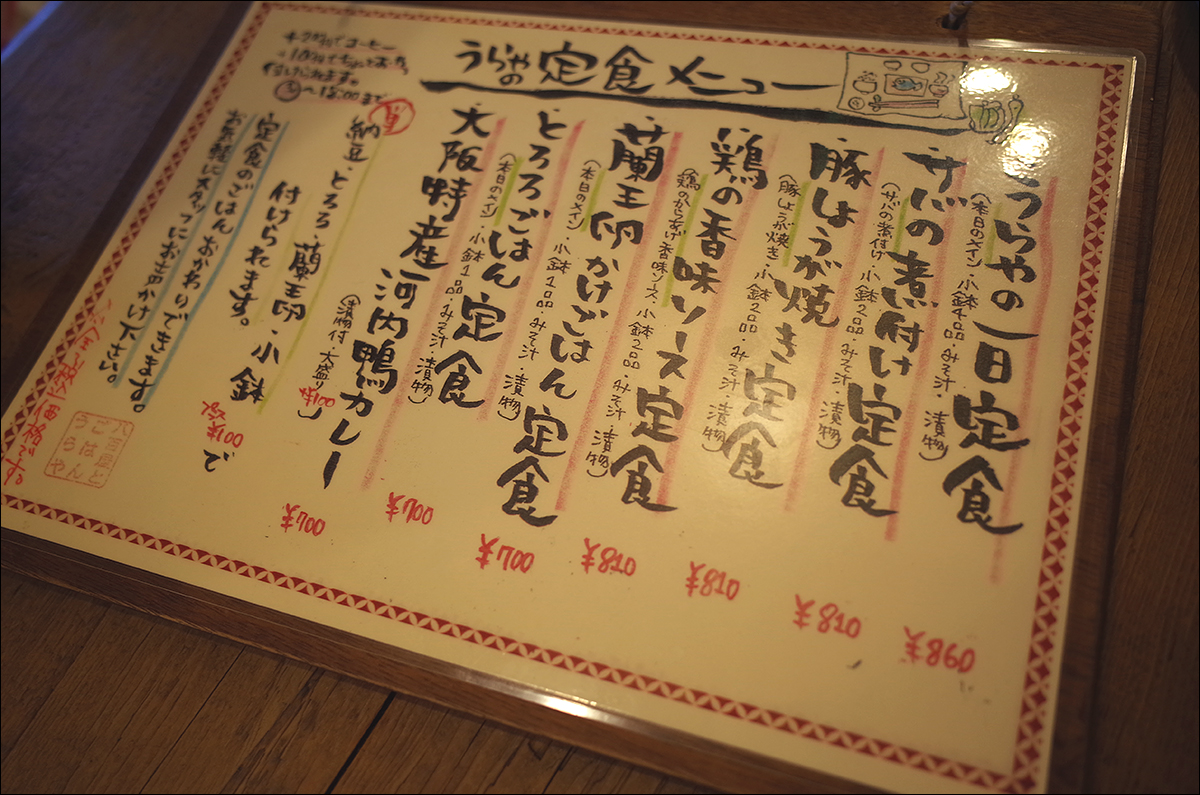 うらやの定食メニュー
・うらやの一日定食
(本日のメイン・小鉢4品・みそ汁・漬物)
¥860
・サバの煮付け定食
(サバの煮付け・小鉢2品・みそ汁・漬物)
¥810
・豚しょうが焼き定食
(豚しょうが焼き・小鉢2品・みそ汁・漬物)
¥810
・鶏の香味ソース定食
(鶏のからあげ香味ソース・小鉢2品・みそ汁・漬物)
¥810
・蘭王卵かけごはん定食
(本日のメイン・小鉢1品・みそ汁・漬物)
¥700
・とろろごはん定食
(本日のメイン・小鉢1品・みそ汁・漬物)
¥700
・大阪特産河内鴨カレー
(漬物付・大盛り¥100)
¥700
納豆・とろろ・蘭王卵・小鉢
付けられます。
¥100で
定食のごはんおかわりできます。
お気軽にスタッフにお声かけ下さい。
〜18:00まで
価格です。
八百屋と
ごはん
うらや